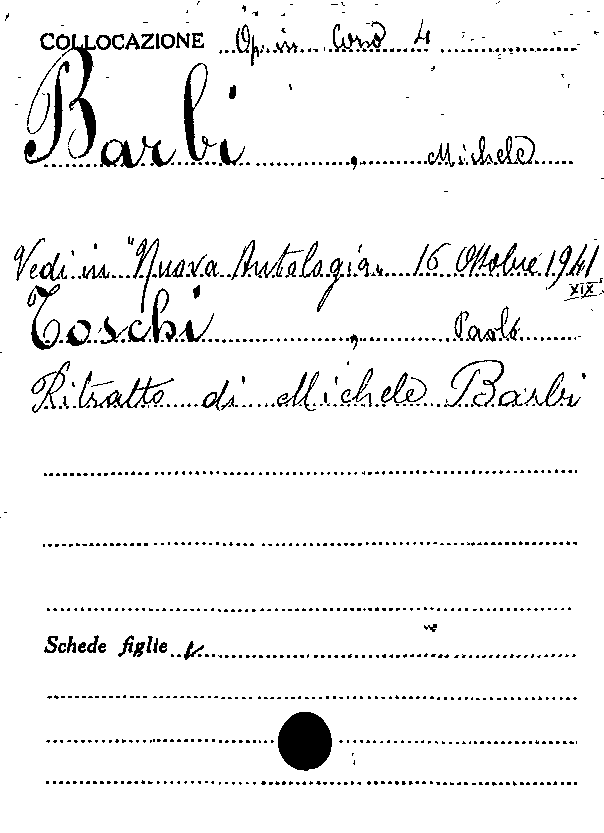 COLLOCAZIONE Op. in Corso 4
Barbi , Michele
Vedi in "Nuova Antologia" 16 Ottobre 1941
XIX
Toschi , Paolo
Ritratto di Michele Barbi
Schede figlie